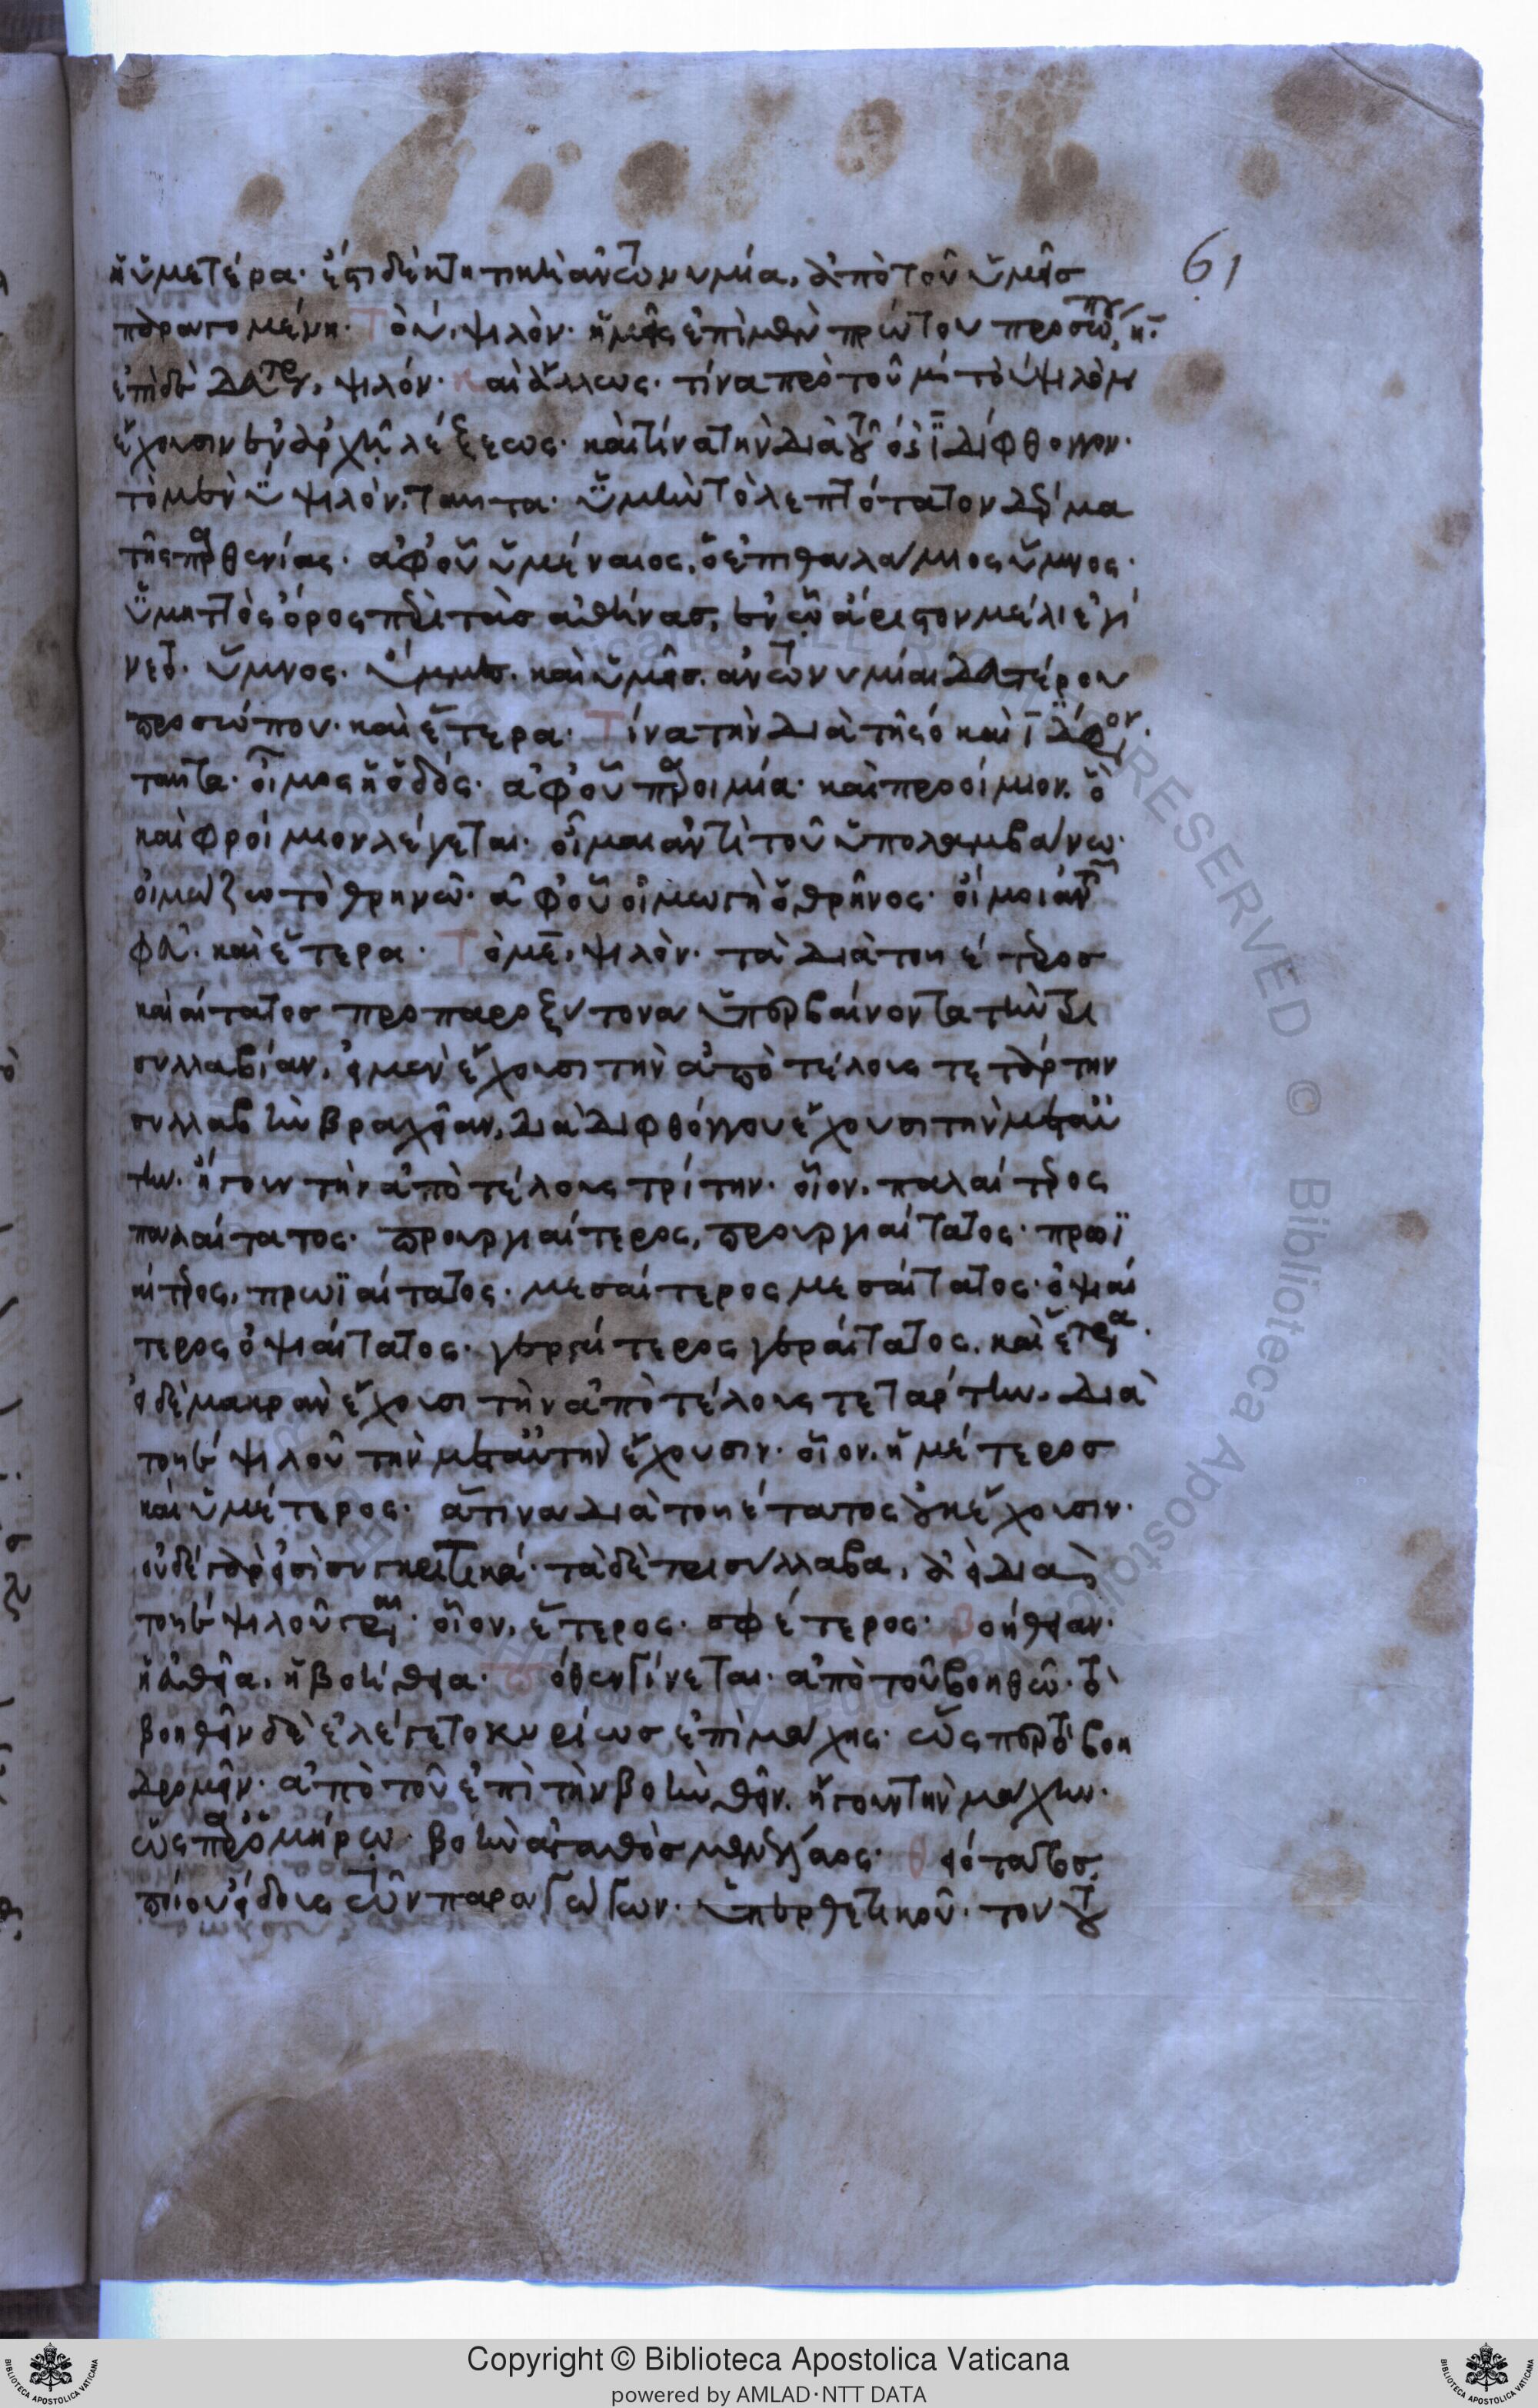 61
ἡ ὑμετέρα· ἔστι δὲ κτητικὴ ἀντωνυμία, ἀπὸ τοῦ ὑμεῖς
παραγομένη· Τὸ υ, ψιλόν· ἡμεῖς ἐπὶ μὲν πρώτου προσώπου, η·
ἐπὶ δὲ δευτέρου, ψιλόν· Καὶ ἄλλως· τίνα πρὸ τοῦ μ τὸ ὐψιλὸν
ἔχουσιν ἐν ἀρχῇ λέξεως· καὶ τίνα τὴν διὰ τοῦ ο καὶ ϊ δίφθογγον·
τὸ μὲν ϋ ψιλόν, ταῦτα· ὑμὴν τὸ λεπτότατον δέρμα
τῆς παρθενίας· ἀφ' οὗ ὑμέναιος, ὁ ἐπιθαλάμιος ὕμνος·
ὑμηττὸς ὄρος περὶ τὰς ἀθήνας, ἐν ᾧ ἄριστον μέλι ἐγί
νετο· ὕμνος· ὕμμες· καὶ ὑμεῖς· ἀντωνυμίαι δευτέρου
προσώπου· καὶ ἕτερα· Τίνα τὴν διὰ τῆς ο καὶ ϊ δίφθογγον·
ταῦτα· οἶμος ἡ ὁδός· ἀφ' οὗ παροιμία· καὶ προοίμιον· ὃ
καὶ φροίμιον λέγεται· οἶμαι ἀντὶ τοῦ ὑπολαμβάνω·
οἰμώζω τὸ θρηνῶ· ἀφ' οὗ οἰμωγὴ ὁ θρῆνος· οἴμοι ἀντὶ τοῦ
φεῦ· καὶ ἕτερα· Τὸ με, ψιλόν· τὰ διὰ τοῦ έτερος
καὶ αίτατος προπαροξύτονα ὑπερβαίνοντα τὴν τρι
συλλαβίαν, εἰ μὲν ἔχουσι τὴν ἀπὸ τέλους τετάρτην
συλλαβὴν βραχεῖαν, διὰ διφθόγγου ἔχουσι τὴν μεταὐ
τήν· ἤγουν τὴν ἀπὸ τέλους τρίτην· οἷον, παλαίτερος
παλαίτατος· προυργιαίτερος, προυργιαίτατος· πρωϊ
αίτερος, πρωϊαίτατος· μεσαίτερος μεσαίτατος· ὀψιαί
τερος ὀψιαίτατος· γεραίτερος γεραίτατος· καὶ ἕτερα·
εἰ δὲ μακρὰν ἔχουσι τὴν ἀπὸ τέλους τετάρτην, διὰ
τοῦ ε ψιλοῦ τὴν μεταὐτὴν ἔχουσιν· οἷον, ἡμέτερος
καὶ ὑμέτερος· ἅτινα διὰ τοῦ έτατος οὐκ ἔχουσιν·
οὐδὲ γάρ εἰσι συγκριτικά· τὰ δὲ τρισύλλαβα, ἀεὶ διὰ
τοῦ ε ψιλοῦ γράφεται· οἷον, ἕτερος· σφέτερος· Βοήθειαν·
ἡ εὐθεῖα, ἡ βοήθεια· Πόθεν γίνεται· ἀπὸ τοῦ βοηθῶ· τὸ
βοηθεῖν δὲ ἐλέγετο κυρίως ἐπὶ μάχης· ὥσπερ τὸ βοη
δρομεῖν· ἀπὸ τοῦ ἐπὶ τὴν βοὴν θεῖν, ἤγουν τὴν μάχην·
ὡς παρ' ὁμήρῳ· βοὴν ἀγαθὸς μενέλαος· Θειότατος,
ποίου εἴδους τῶν παραγώγων· ὑπερθετικοῦ· τὸν τοῦ